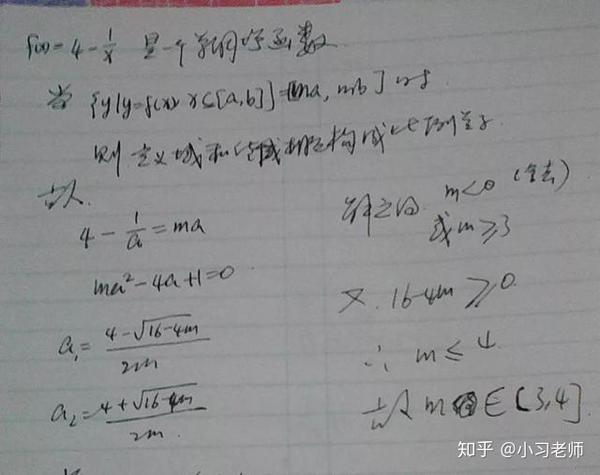 f(x) = 4 - 1/x 是一个单调的函数
当 {y|y=f(x) x∈[a,b]} = [ma, mb] 时
则 定义域和值域相互构成比例关系.
故
4 - 1/a = ma
ma² - 4a + 1 = 0
a₁ = (4 - √(16-4m)) / 2m
a₂ = (4 + √(16-4m)) / 2m.
解之得 m<0 (舍去)
或 m ≥ 3
又 16-4m ≥ 0
∴ m ≤ 4
故 m ∈ [3,4].
知乎 @小习老师